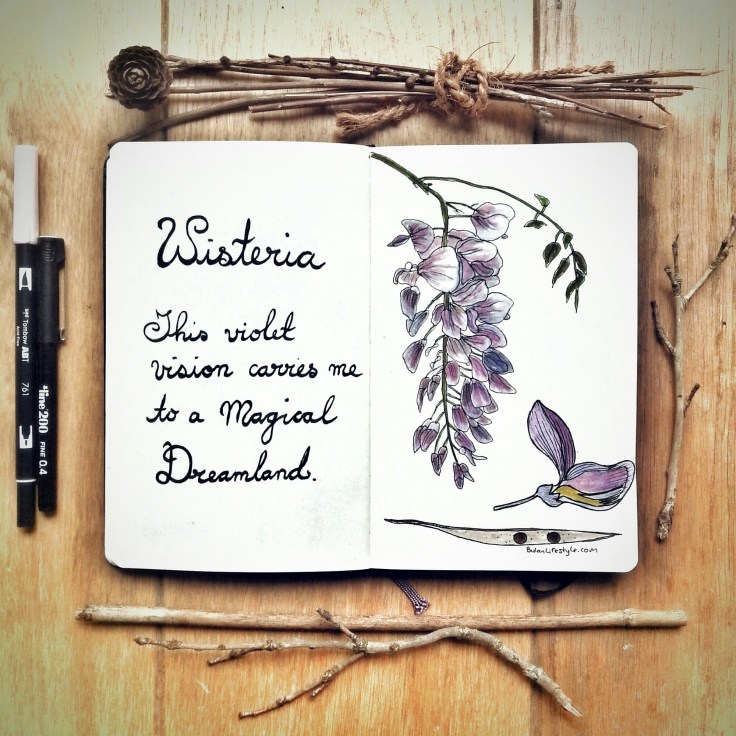 Wisteria
This violet
vision carries me
to a Magical
Dreamland.
BulanLifestyle.com
Tombow ABT
761
line 200
FINE 0.4